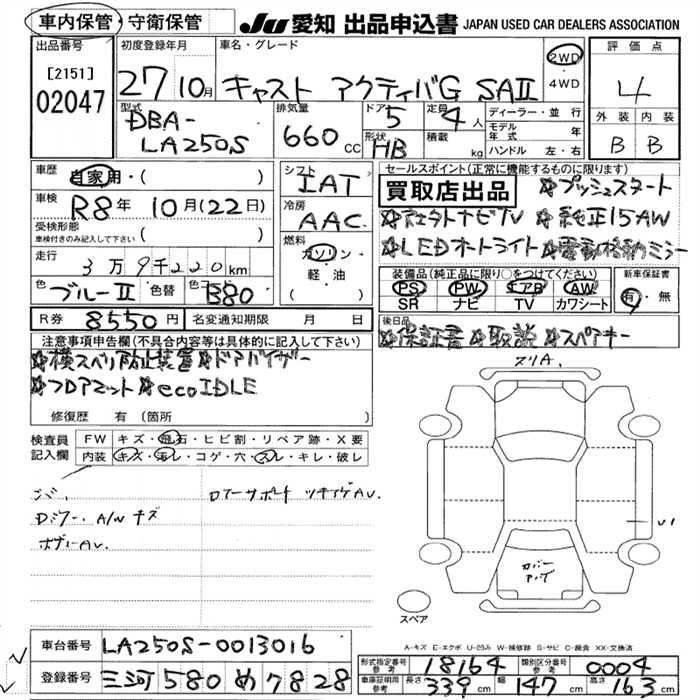 車内保管・守衛保管
JU 愛知 出品申込書 JAPAN USED CAR DEALERS ASSOCIATION
出品番号
[2151]
02047
初度登録年月
27 10月
車名・グレード
キャスト アクティバG SAII
2WD
・
4WD
評価点
4
外装 内装
B B
型式
DBA-
LA250S
排気量
660 CC
ドア 5
形状 HB
定員 4人
積載 kg
ディーラー・並行
モデル年式 年
ハンドル 左・右
車歴
自家用・( )
車検
R8年 10月(22日)
受検形態
車検付きのみ記入して下さい ( )
走行
3万9千220km
色 ブルーII 色替 色コード B80
シフト
IAT
冷房
AAC
燃料
ガソリン・
軽・油
( )
セールスポイント(正常に機能するものに限ります)
買取店出品 ☆プッシュスタート
☆社外ナビTV ☆純正15AW
☆LEDオートライト ☆電動格納ミラー
装備品(純正品に限り○をつけてください)
PS PW エアB AW
SR ナビ TV カワシート
新車保証書
有・無
R券 8550円 名変通知期限 月 日
後日品
☆保証書 ☆取説 ☆スペアキー
注意事項申告欄(不具合内容等は具体的に記入して下さい)
☆横スベリ防止装置 ☆ドアバイザー
☆フロアマット ☆ecoIDLE
修復歴 有(箇所 )
検査員
記入欄
FW キズ・飛石・ヒビ割・リペア跡・X要
内装 キズ・汚レ・コゲ・穴・スレ・キレ・破レ
A/W キズ
スリA.
U1
カバー
スペア
A-キズ E-エクボ U-凹み W-補修跡 S-サビ C-腐食 XX-交換済
車台番号 LA250S-0013016
登録番号 三河 580 め 7828
型式指定番号 参考 18164 類別区分番号 参考 0004
車庫証明用 参考 長さ 339cm 幅 147cm 高さ 163cm